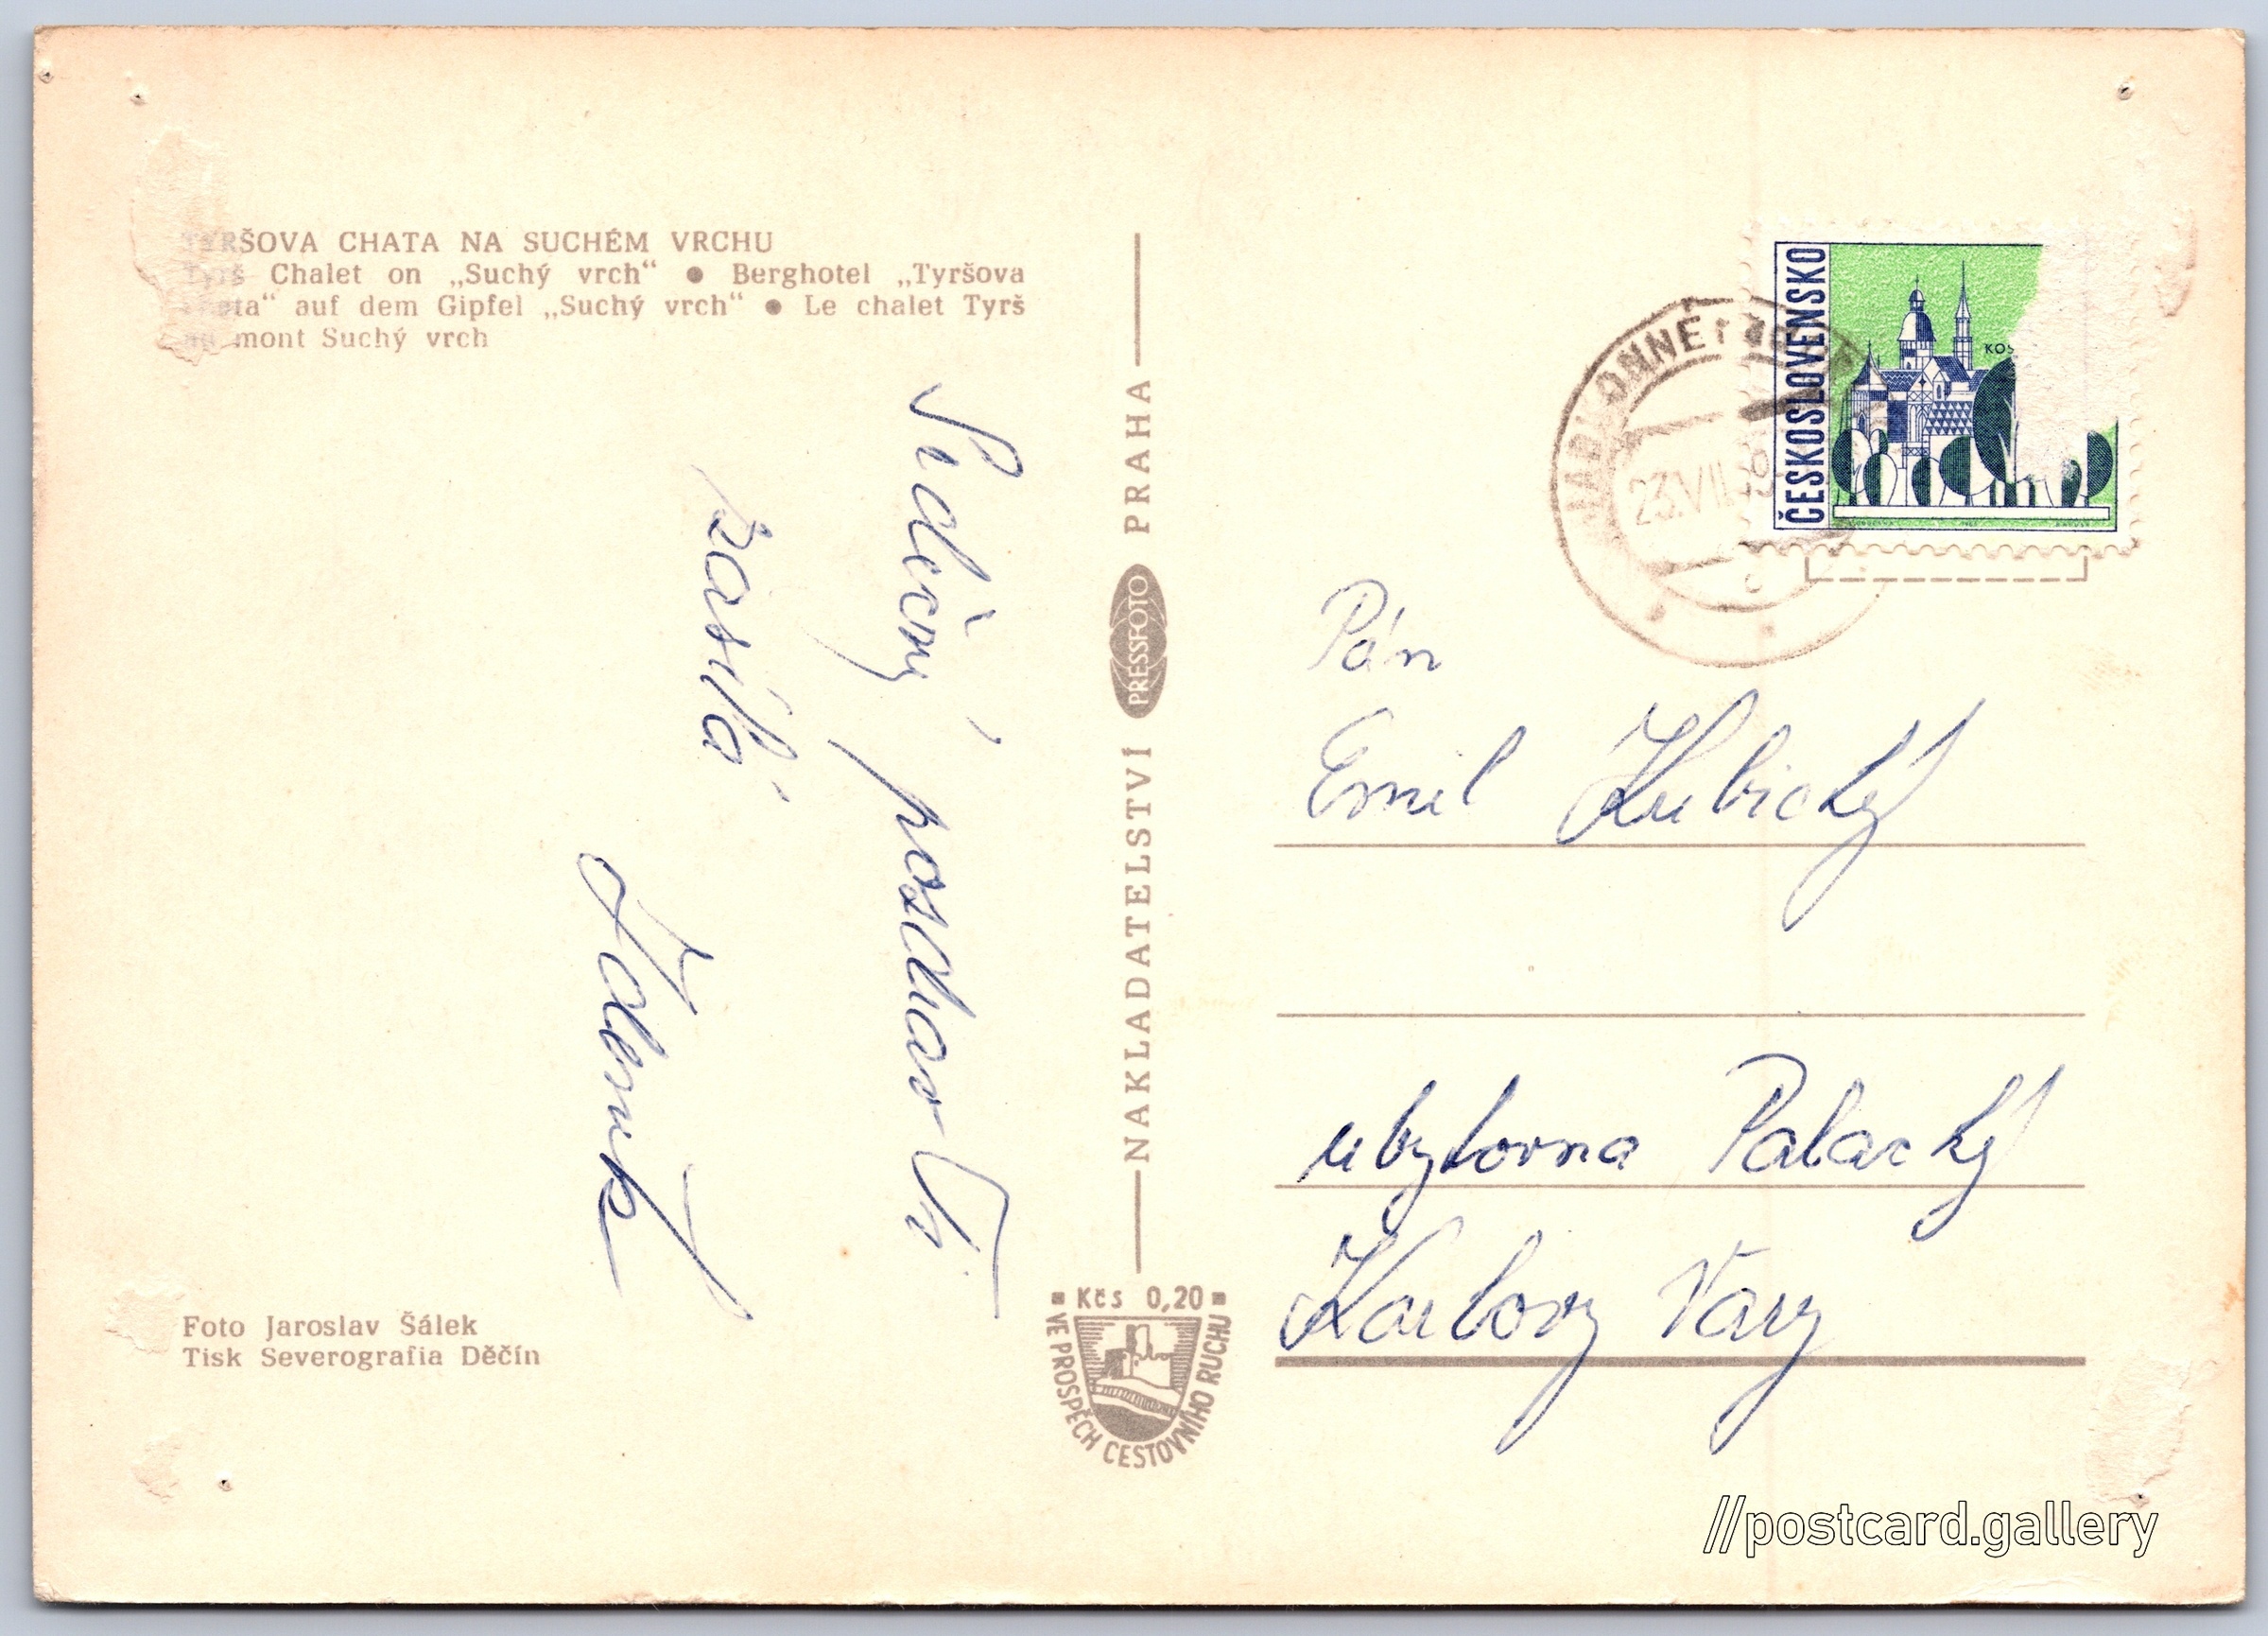 TYRŠOVA CHATA NA SUCHÉM VRCHU
Tyrš Chalet on „Suchý vrch“ ● Berghotel „Tyršova
chata“ auf dem Gipfel „Suchý vrch“ ● Le chalet Tyrš
au mont Suchý vrch
Srdečný pozdrav Ti
zasílá
Zdeněk
Foto Jaroslav Šálek
Tisk Severografia Děčín
NAKLADATELSTVÍ PRESSFOTO PRAHA
Kčs 0,20
VE PROSPĚCH CESTOVNÍHO RUCHU
ČESKOSLOVENSKO
23.VII
Pán
Emil Kubický
ubytovna Palacký
Karlovy Vary
//postcard.gallery